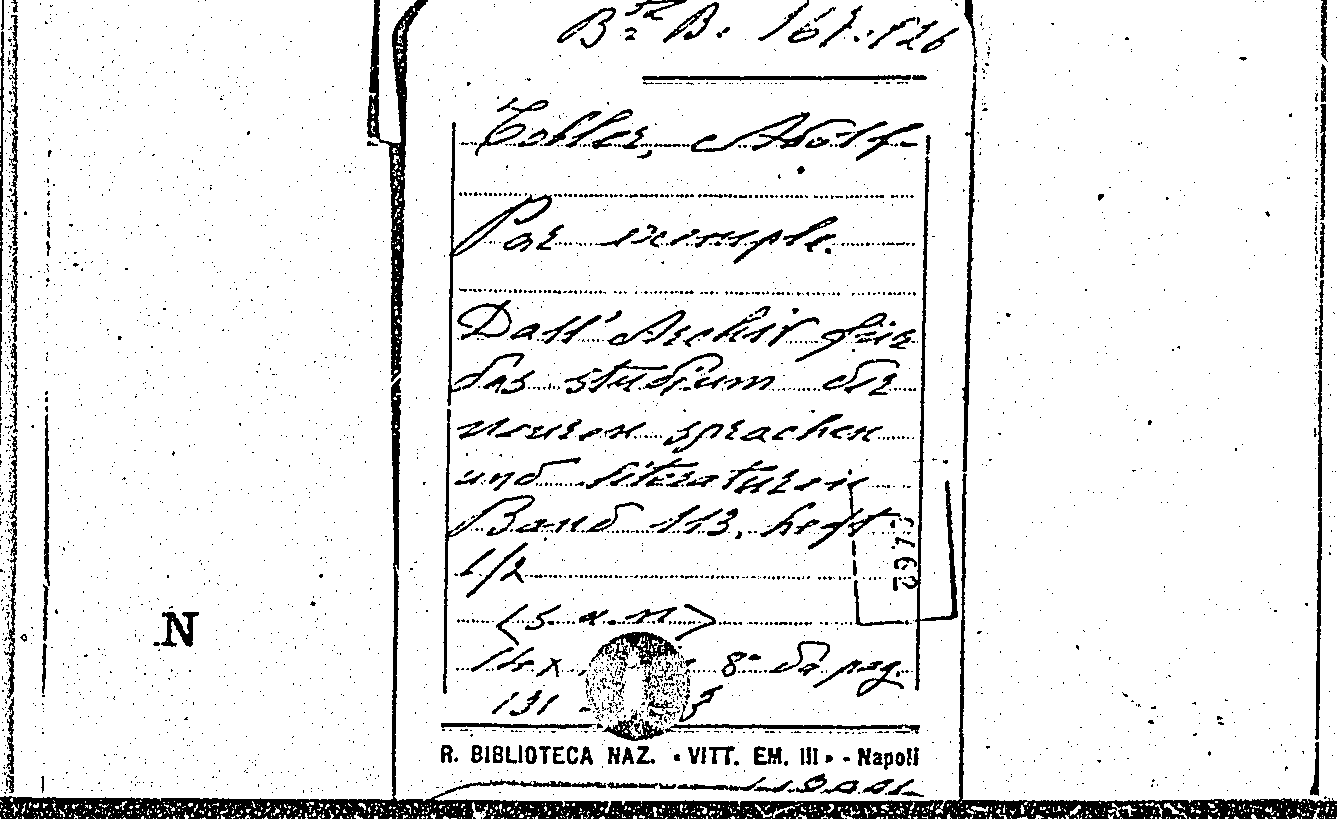 Bᶻᵃ B. 167.
Tobler, Adolf
Par exemple.
Dall' Archiv für
das studium der
neueren sprachen
und literaturen
Band 113, heft
1/2
(s. a. n)
8° da pag.
131
2973
N
R. BIBLIOTECA NAZ. « VITT. EM. III » - Napoli